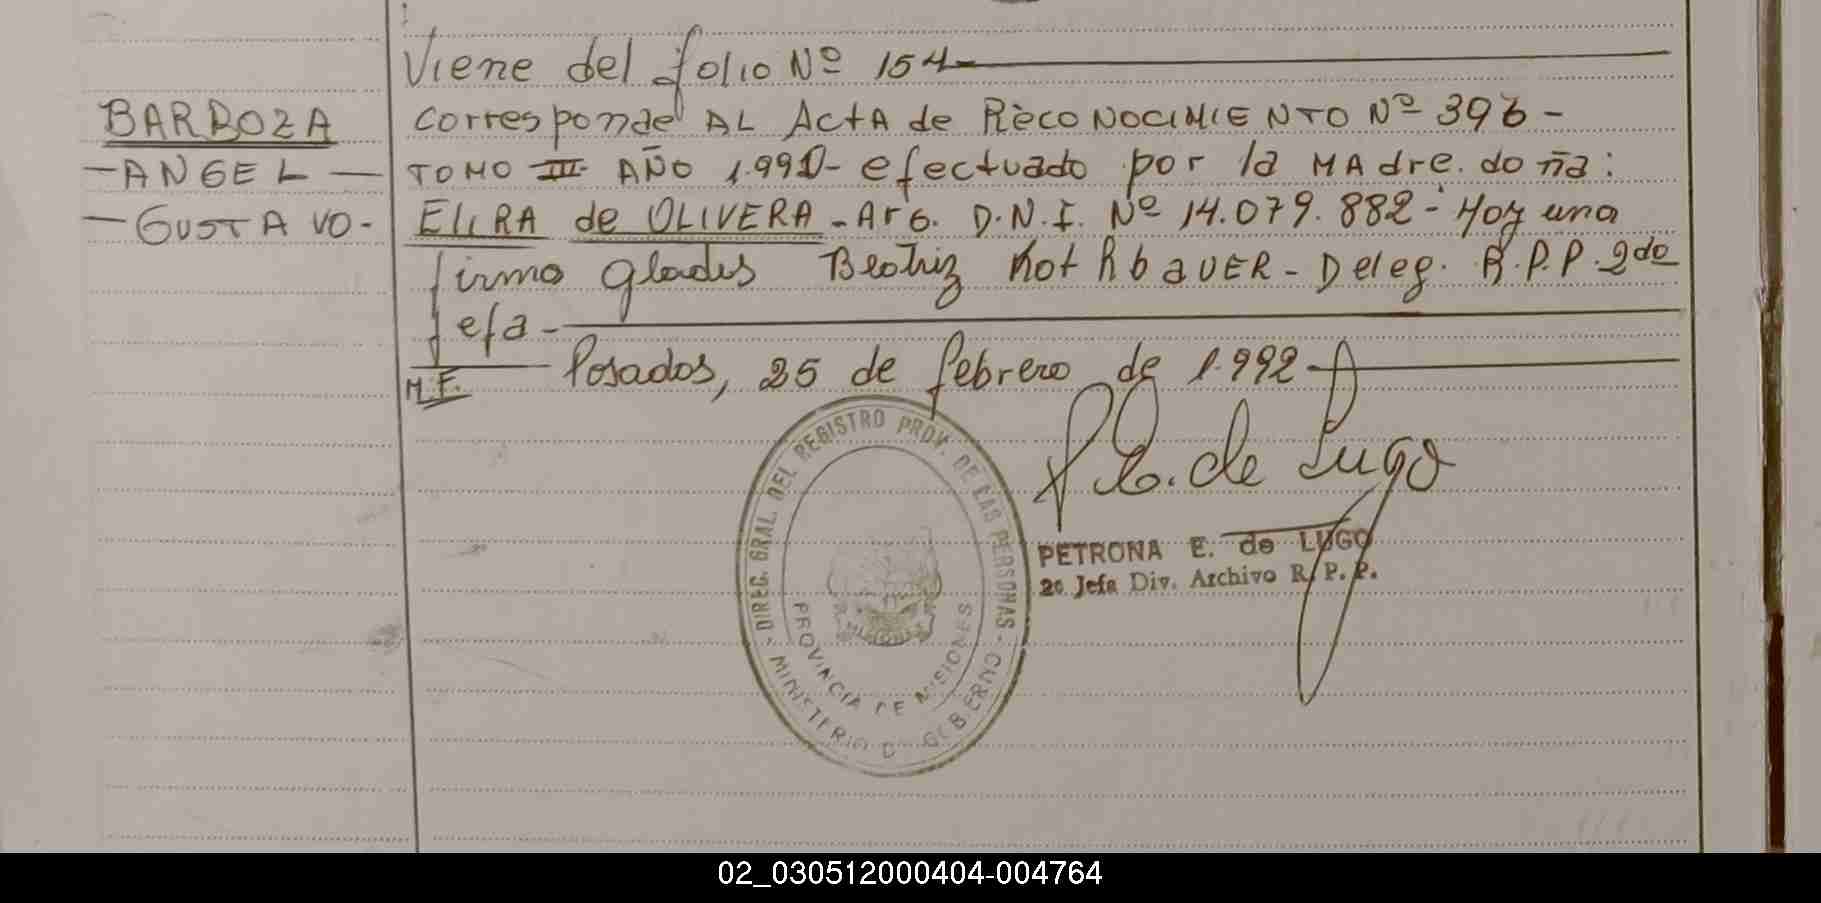 Viene del folio Nº 154-
BARBOZA
-ANGEL-
-GUSTAVO-
corresponde AL ActA de RecoNOCIMIENTO Nº 396-
TOMO III- AÑO 1.991- efectuado por la MAdre. doña:
ELIRA de OLIVERA - Arg. D.N.I. Nº 14.079.882 - Hay una
firma Gladis Beatriz Rothbauer - Deleg. R.P.P. 2da
Jefa-
M.F.
Posadas, 25 de febrero de 1.992-
P.E. de Lugo
PETRONA E. de LUGO
2a Jefa Div. Archivo R.P.P.
- DIREC. GRAL. DEL REGISTRO PROV. DE LAS PERSONAS -
PROVINCIA DE MISIONES
MINISTERIO D GOBIERNO
02_030512000404-004764